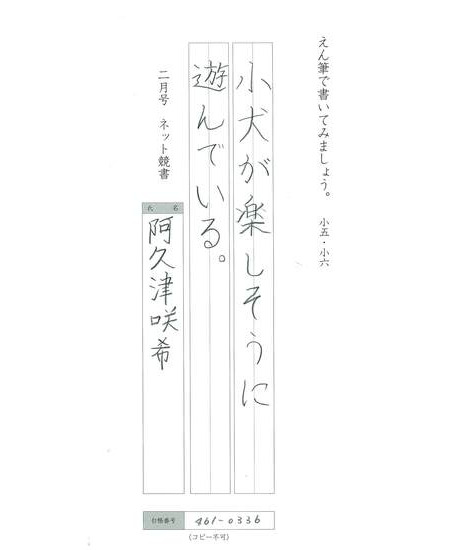 えん筆で書いてみましょう。 小五・小六
小犬が楽しそうに
遊んでいる。
二月号 ネット競書
氏名
阿久津咲希
台帳番号 461-0336
(コピー不可)